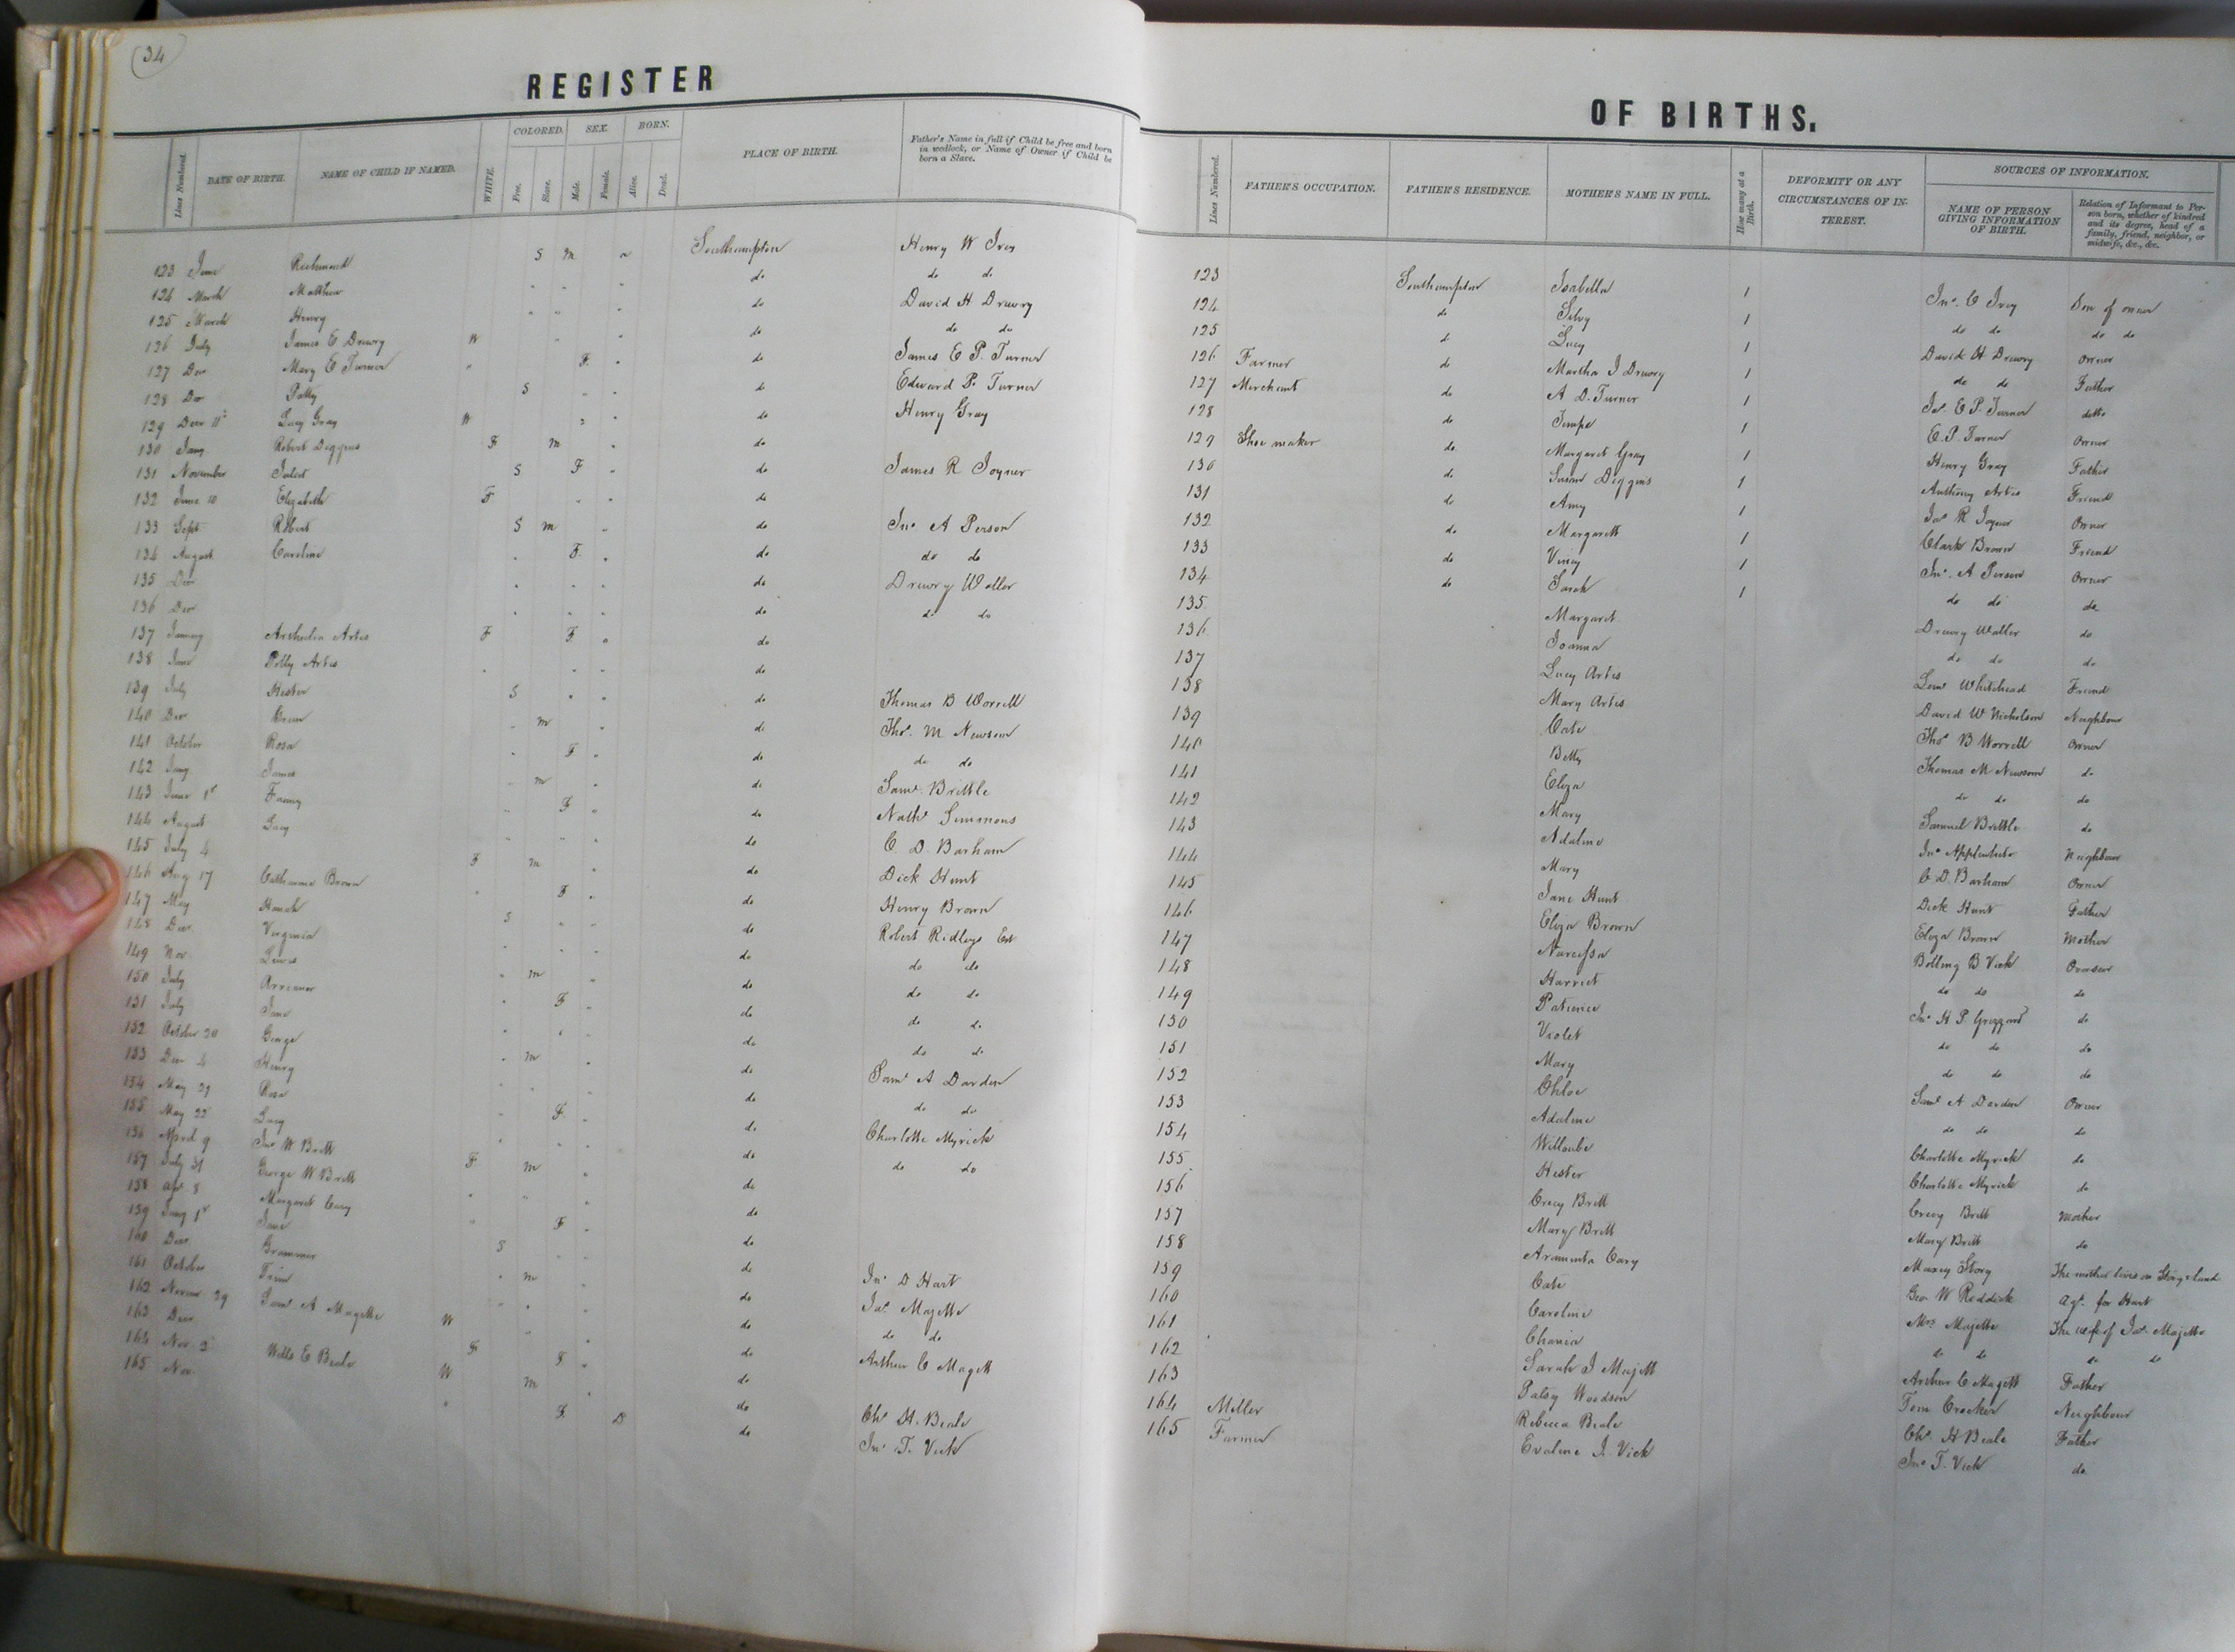 34
REGISTER
Lines Numbered. DATE OF BIRTH. NAME OF CHILD IF NAMED. WHITE. COLORED. Free. Slave. SEX. Male. Female. BORN. Alive. Dead. PLACE OF BIRTH. Father's Name in full if Child be free and born in wedlock, or Name of Owner if Child be born a Slave.
123 June Richmond S M a Southampton Henry W Ivey
124 March Matthew " " " do do do
125 March Henry " " " do David H Drewry
126 July James E Drewry W " " do do do
127 Dec Mary E Turner " F " do James E P. Turner
128 Dec Patty S " " do Edward P. Turner
129 Decr 11th Lucy Gray W " " do Henry Gray
130 Jany Robert Diggins F M do
131 November Juliet S F " do James R Joyner
132 June 10 Elizabeth F " " do
133 Sept Robert S M " do Jno A Person
134 August Caroline " F " do do do
135 Decr " " " do Drewry Waller
136 Decr " " " do do do
137 January Artis F F " do
138 June Polly Artis " " " do
139 July Hester S " " do Thomas B Worrell
140 Decr " M " do Thos. M Newsom
141 October Rosa " F " do do do
142 Jany James " M " do Saml. Brittle
143 June 1st Fanny " F " do Nathl Simmons
144 August Lucy " " " do C. D. Barham
145 July 4 F M " do Dick Hunt
146 Aug 17 Catharine Brown " F " do Henry Brown
147 May S " " do Robert Ridleys Est
148 Decr Virginia " " " do do do
149 Nov Lewis " M " do do do
150 July " F " do do do
151 July Jane " " " do do do
152 October 20 George " M " do Saml A Darden
153 Decr 4 Henry " " " do do do
154 May 29 Rosa " F " do Charlotte Myrick
155 May 22 Lucy " " " do do do
156 April 9 Jno W Britt F M " do
157 July 31 George W Britt " " " do
158 Ap. 8 Margaret Cary " F " do
159 Jany 1st Jane S " " do Jno D Hart
160 Decr " M " do Jas. Majette
161 October " " " do do do
162 Novem 29 Saml. A Magette W " " do Arthur C Magett
163 Decr F F " do
164 Nov. 2 Wills E Beale W M " do Chs. H. Beale
165 Nov " F D do Jno T. Vick
OF BIRTHS.
Lines Numbered. FATHER'S OCCUPATION. FATHER'S RESIDENCE. MOTHER'S NAME IN FULL. How many at a Birth. DEFORMITY OR ANY CIRCUMSTANCES OF INTEREST. SOURCES OF INFORMATION. NAME OF PERSON GIVING INFORMATION OF BIRTH. Relation of Informant to Person born, whether of kindred and its degree, head of a family, friend, neighbor, or midwife, &c., &c.
123 Southampton Isabella 1 Jno. C Ivey Son of owner
124 do Silvy 1 do do do do
125 do Lucy 1 David H Drewry Owner
126 Farmer do Martha J Drewry 1 do do Father
127 Merchant do A D. Turner 1 Jas. E P. Turner ditto
128 do Tempe 1 E. P. Turner Owner
129 Shoe maker do Margaret Gray 1 Henry Gray Father
130 do Susan Diggins 1 Anthony Artis Friend
131 do Amy 1 Jas. R Joyner Owner
132 do Margarett 1 Clark Brown Friend
133 do Viney 1 Jno. A Person Owner
134 do Sarah 1 do do do
135 Margaret Drewry Waller do
136 Joanna do do do
137 Lucy Artis Whitehead Friend
138 Mary Artis David W Nicholson Neighbour
139 Cate Thos B Worrell Owner
140 Betty Thomas M Newsom do
141 Eliza do do do
142 Mary Samuel Brittle do
143 Adaline Jno Neighbour
144 Mary C. D. Barham Owner
145 Jane Hunt Dick Hunt Father
146 Eliza Brown Eliza Brown Mother
147 Narcissa Bolling B Vick Overseer
148 Harriet do do do
149 Patience Jno H P. do
150 Violet do do do
151 Mary do do do
152 Chloe Saml A Darden Owner
153 Adaline do do do
154 Willoubie Charlotte Myrick do
155 Hester Charlotte Myrick do
156 Crecy Britt Crecy Britt Mother
157 Mary Britt Mary Britt do
158 Araminta Cary Story The mother lives on Storys land
159 Cate Geo. W Reddick Agt. for Hart
160 Caroline Mrs Majette The wife of Jas. Majette
161 Chania do do do do
162 Sarah J Majett Arthur C Magett Father
163 Patsy Woodson Tom Crocker Neighbour
164 Miller Rebecca Beale Chs. H Beale Father
165 Farmer Evaline J. Vick Jno T. Vick do